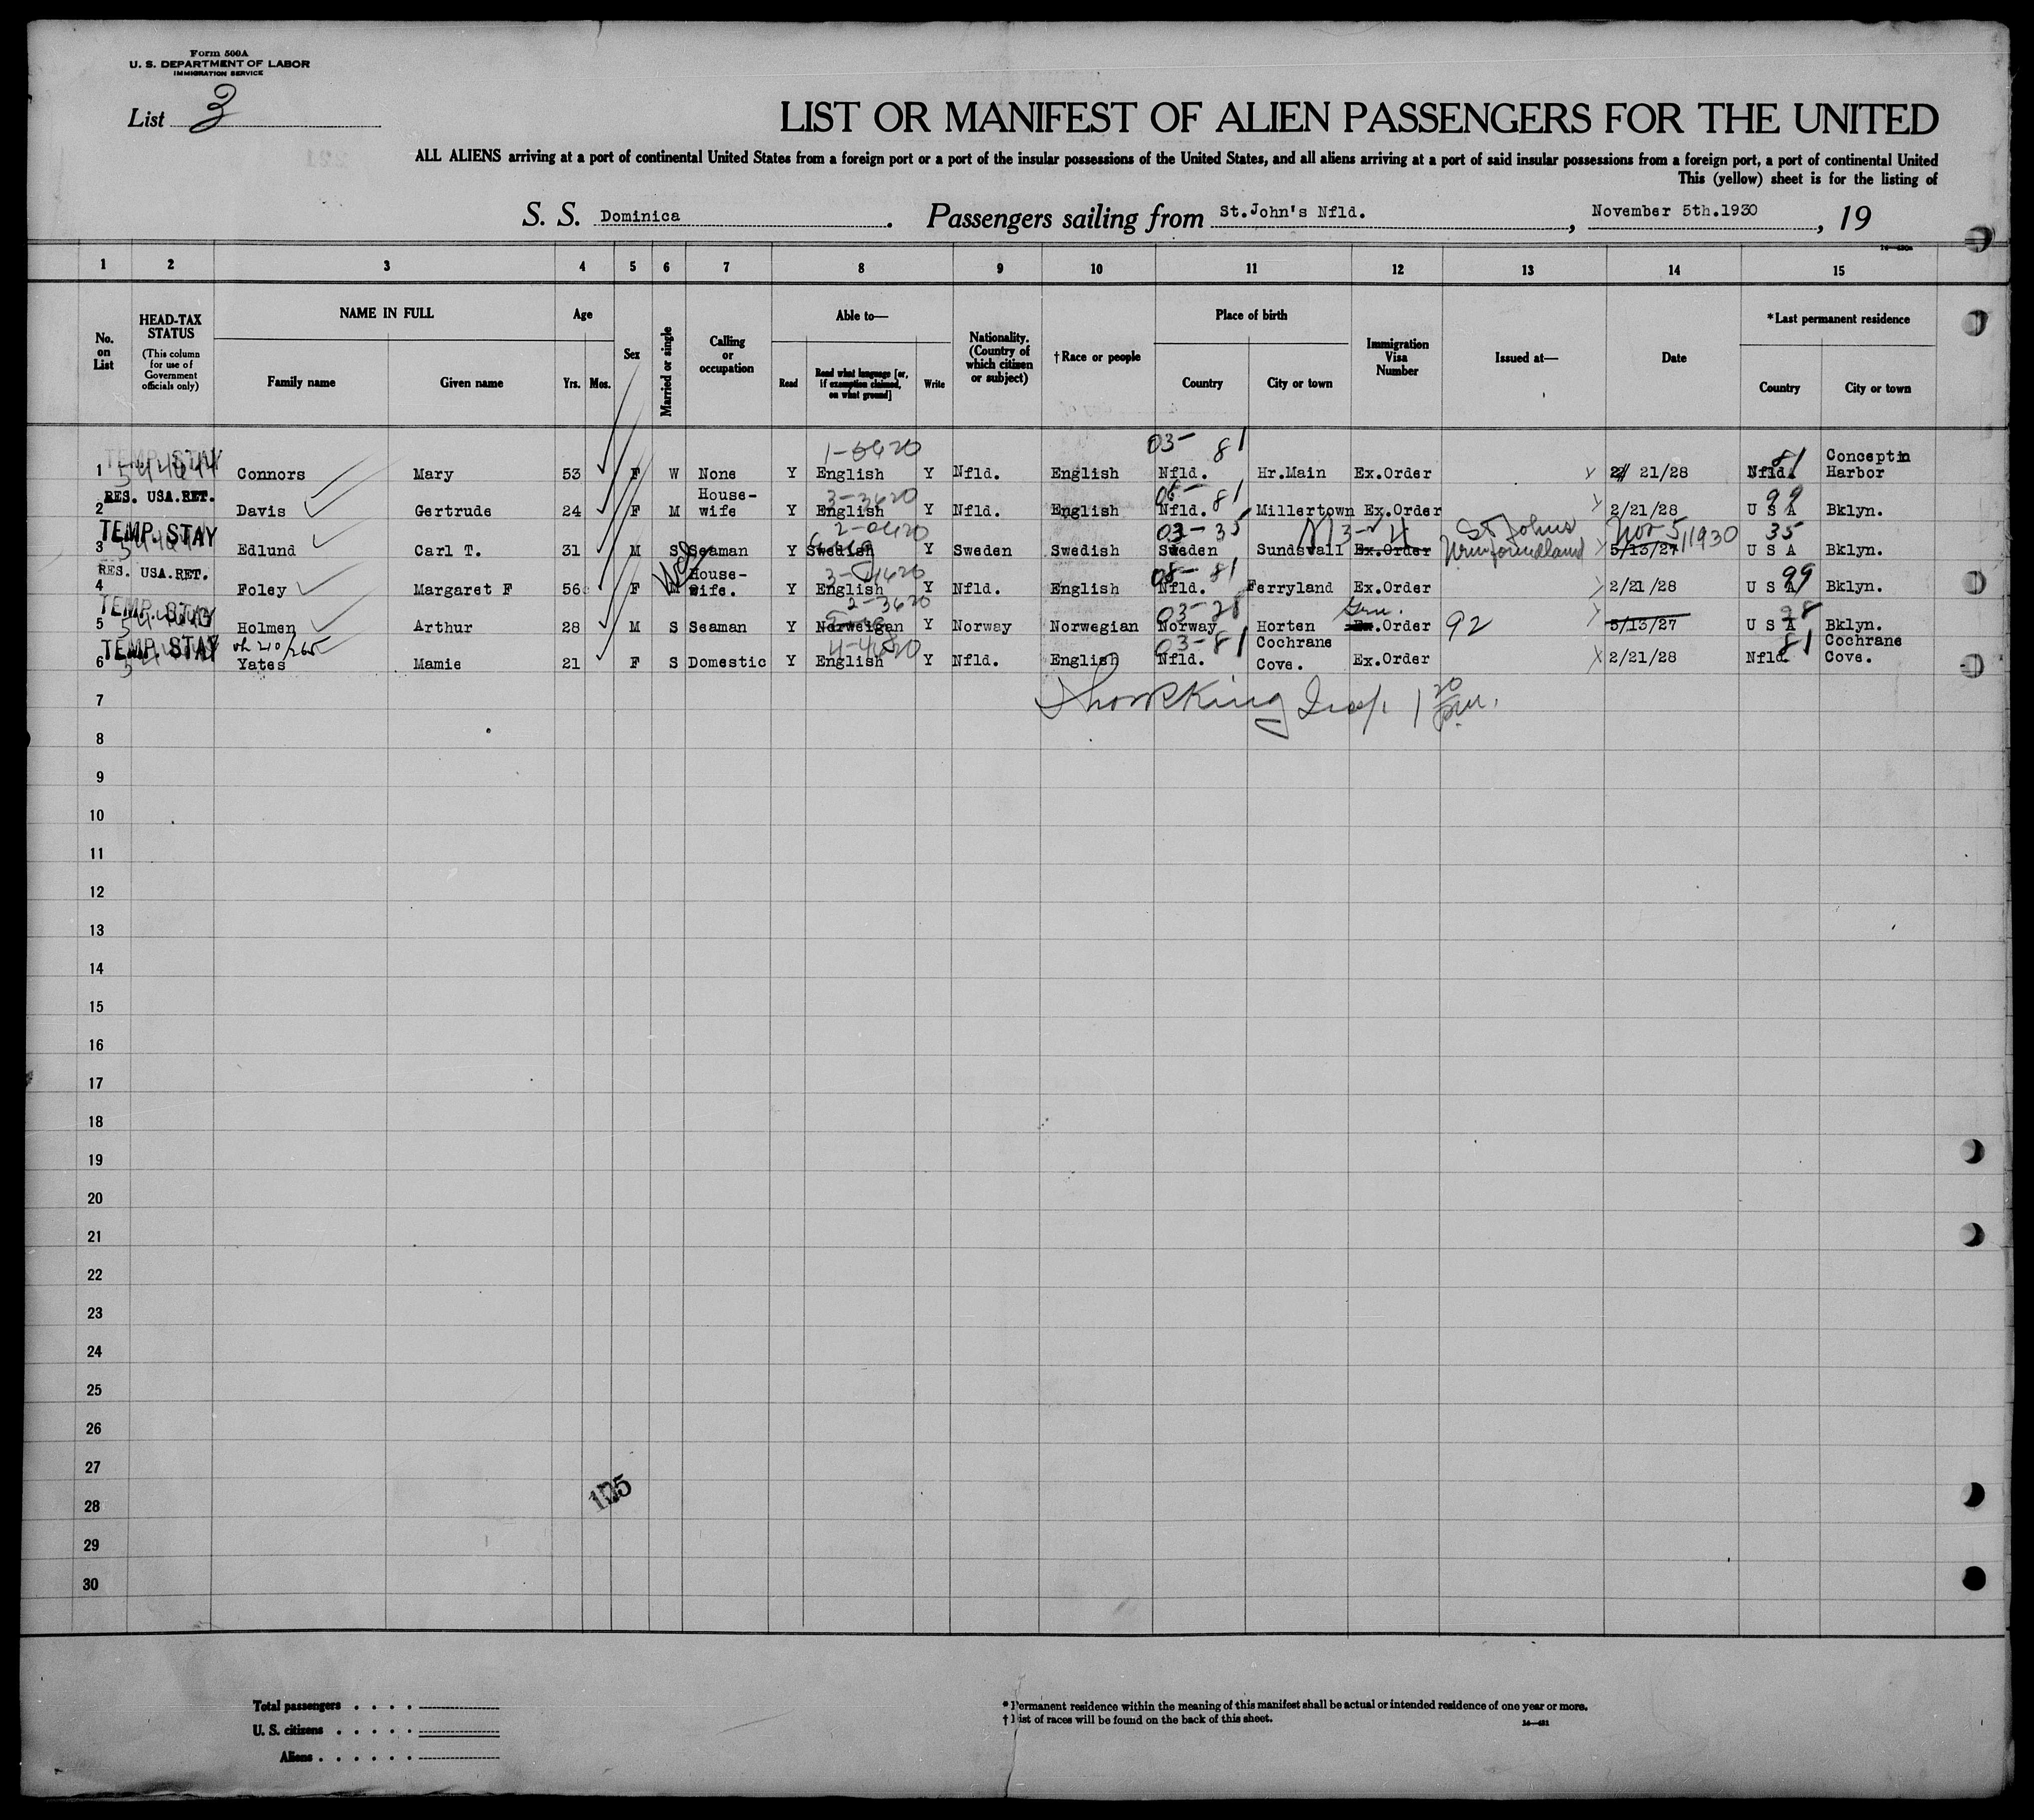 Form 500A
U. S. DEPARTMENT OF LABOR
IMMIGRATION SERVICE
List 3
LIST OR MANIFEST OF ALIEN PASSENGERS FOR THE UNITED
ALL ALIENS arriving at a port of continental United States from a foreign port or a port of the insular possessions of the United States, and all aliens arriving at a port of said insular possessions from a foreign port, a port of continental United
This (yellow) sheet is for the listing of
S. S. Dominica. Passengers sailing from St.John's Nfld., November 5th.1930, 19
1 2 3 4 5 6 7 8 9 10 11 12 13 14 15
No. on List
HEAD-TAX STATUS
(This column for use of Government officials only)
NAME IN FULL
Family name
Given name
Age
Yrs. Mos.
Sex
Married or single
Calling or occupation
Able to—
Read
Read what language [or, if exemption claimed, on what ground]
Write
Nationality. (Country of which citizen or subject)
† Race or people
Place of birth
Country
City or town
Immigration Visa Number
Issued at—
Date
*Last permanent residence
Country
City or town
03- 81
1 TEMP. STAY Connors Mary 53 F W None Y English Y Nfld. English Nfld. Hr.Main Ex.Order 21/28 Nfld. 81 Conceptin Harbor
RES. USA.RET.
3-3620 81 99
2 Davis Gertrude 24 F M House-wife Y English Y Nfld. English Nfld. Millertown Ex.Order 2/21/28 U S A Bklyn.
TEMP. STAY
03-35 St Johns Newfoundland Nov 5, 1930 35
3 Edlund Carl T. 31 M S Seaman Y Swedish Y Sweden Swedish Sweden Sundsvall Ex.Order 5/13/27 U S A Bklyn.
RES. USA.RET.
81 99
4 Foley Margaret F 56 F M House-wife. Y English Y Nfld. English Nfld. Ferryland Ex.Order 2/21/28 U S A Bklyn.
TEMP. STAY
2-3620 03-28
5 Holmen Arthur 28 M S Seaman Y Norweigan Y Norway Norwegian Norway Horten .Order 92 5/13/27 U S A Bklyn.
TEMP. STAY
03-81 81
6 Yates Mamie 21 F S Domestic Y English Y Nfld. English Nfld. Cochrane Cove. Ex.Order 2/21/28 Nfld. Cochrane Cove.
7
King Insp. 1 20 pm.
8
9
10
11
12
13
14
15
16
17
18
19
20
21
22
23
24
25
26
27
28
29
30
Total passengers . . . .
U. S. citizens . . . . .
Aliens . . . . . .
* Permanent residence within the meaning of this manifest shall be actual or intended residence of one year or more.
† List of races will be found on the back of this sheet.